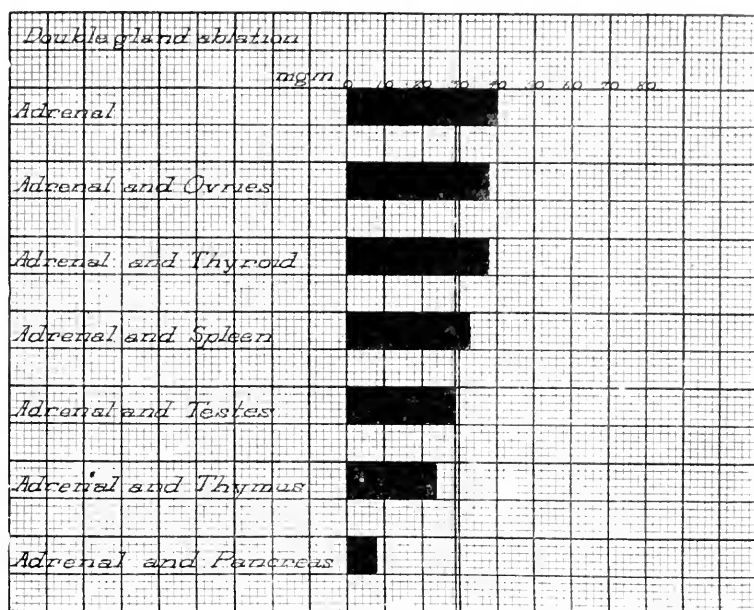 Double gland ablation
mgm 0 10 20 30 40 50 60 70 80
Adrenal
Adrenal and Ovries
Adrenal and Thyroid
Adrenal and Spleen
Adrenal and Testes
Adrenial and Thymus
Adrenal and Pancreas